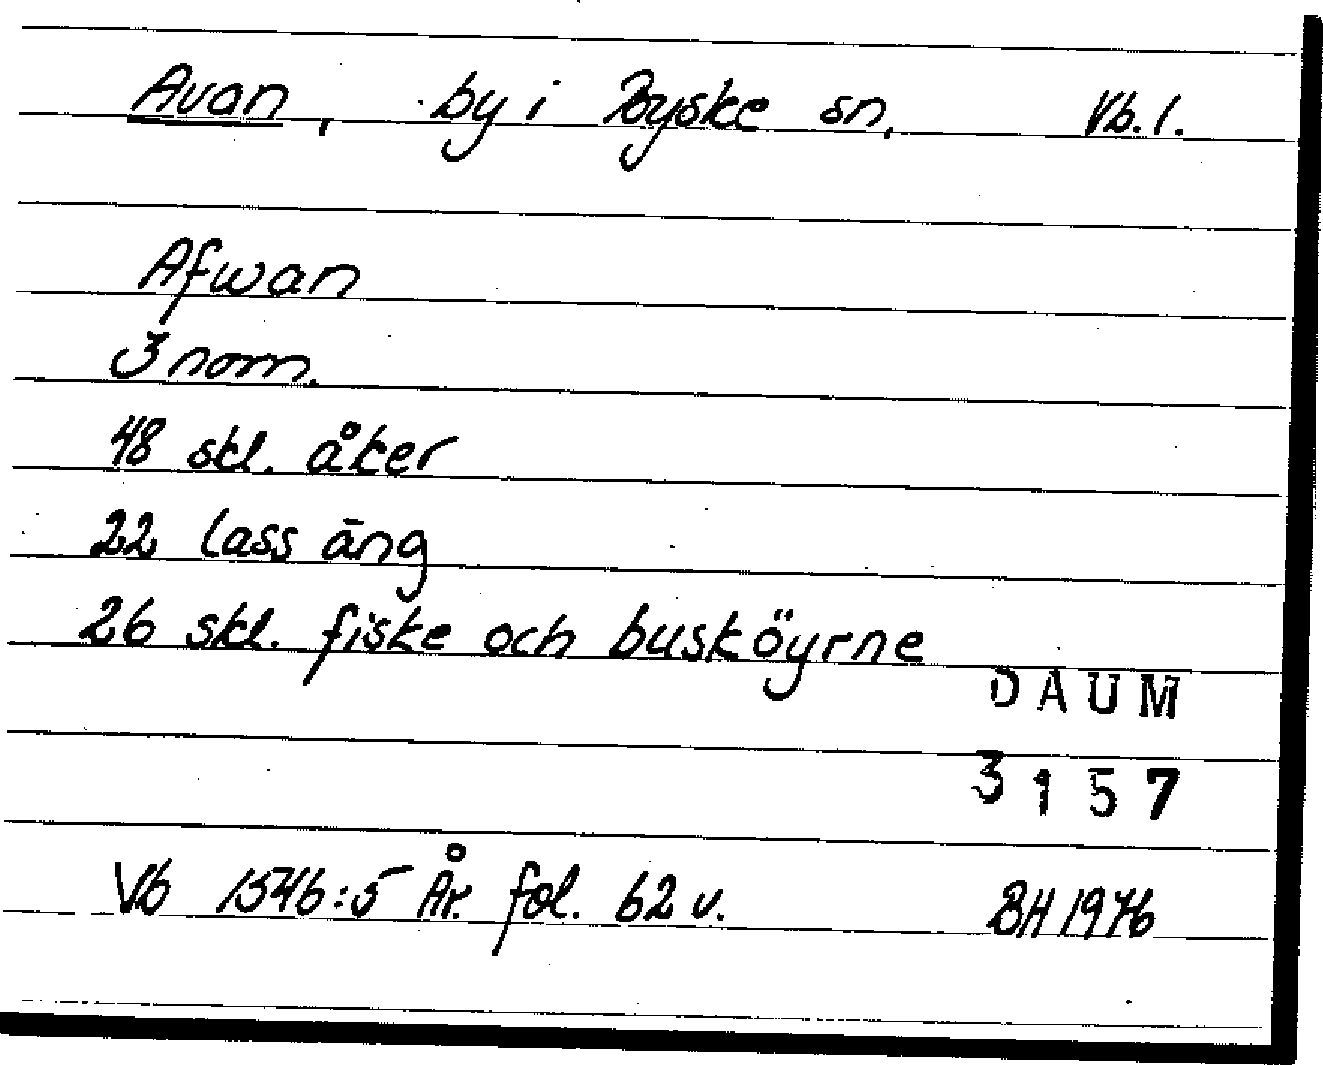 Avan, by i Byske sn, Vb. l.
Afwan
3 nom.
48 skl. åker
22 lass äng
26 skl. fiske och busköyrne
DAUM
3157
Vb 1546:5 År. fol. 62 v. BH 1976